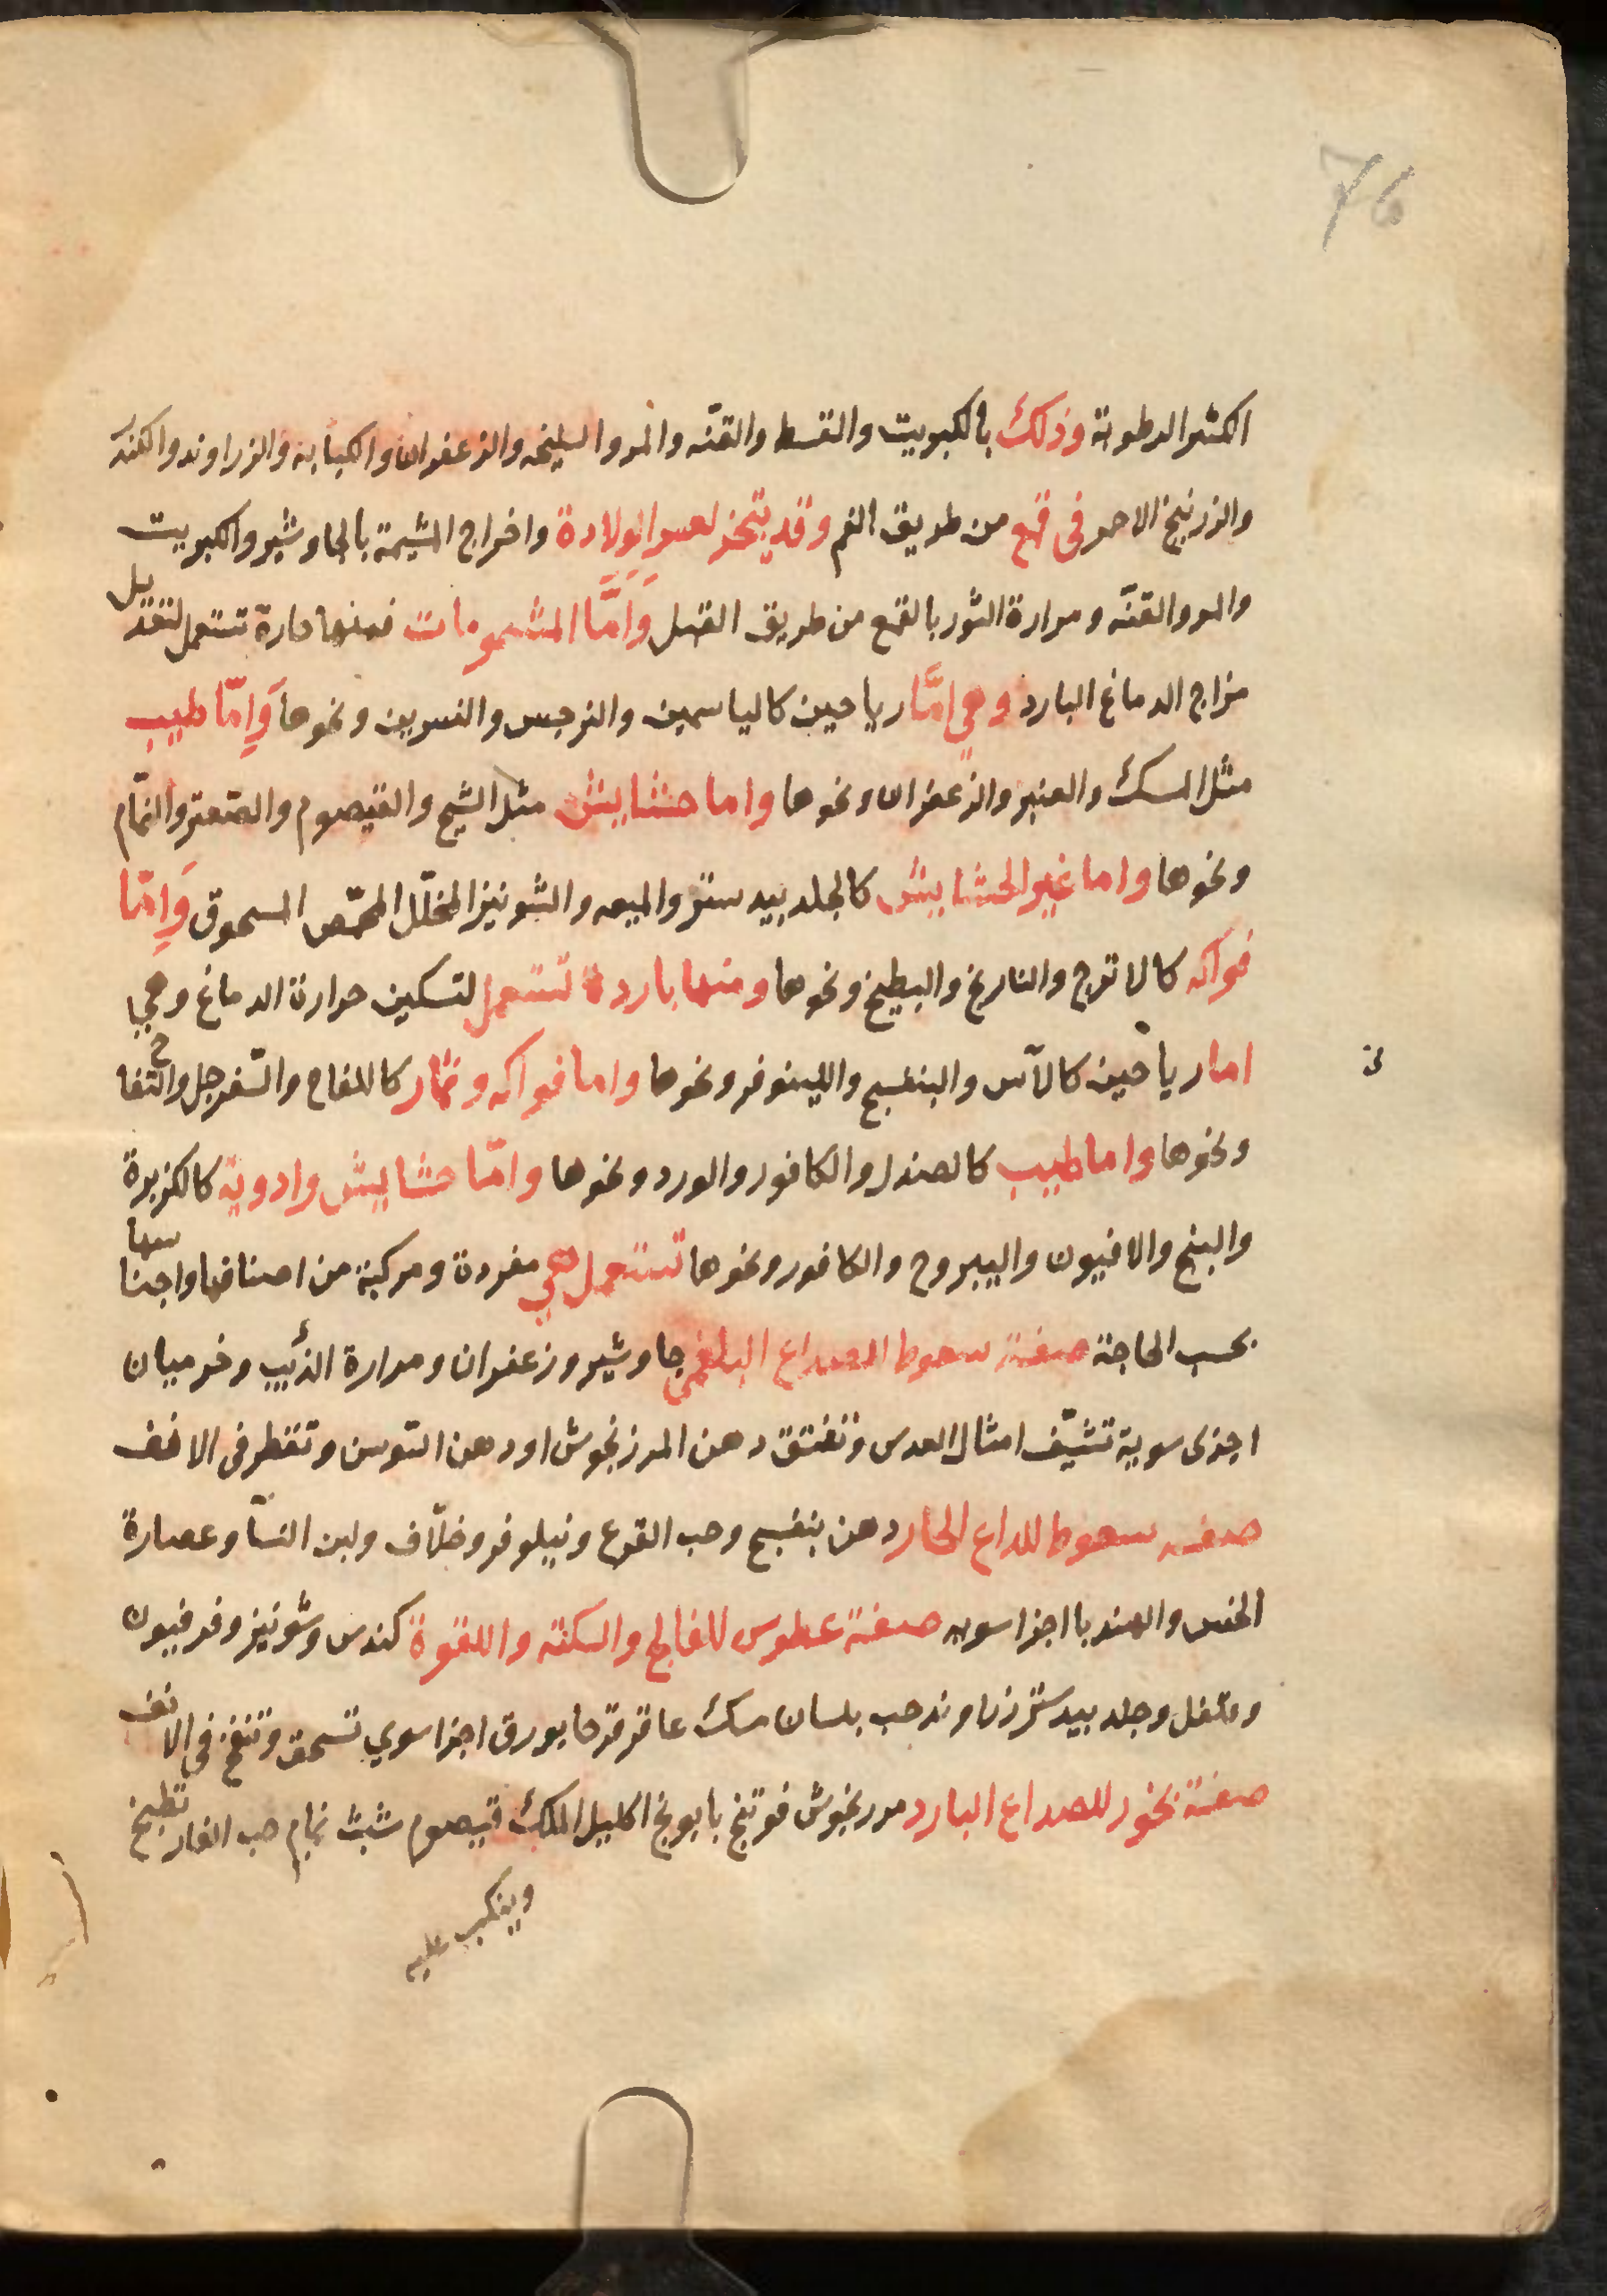 76
الكثير الرطوبة وذلك بالكبريت والقسط والقنّه والمر والسليخه والزعفران والكبابه والزراوند والكندر
والزرنيخ الاحمر فى قمع من طريق الفم وقد يتبخر لعسر الولادة واخراج المشيمة بالجاوشير والكبريت
والمر والقنّه ومرارة الثور بالقمع من طريق القبل وَاَمَّا المشمومات فمنها حارة تستعمل لتعديل
مزاج الدماغ البارد وهي امّا رياحين كالياسمين والنرجس والنسرين ونحوها وَاِمّا طيب
مثل المسك والعنبر والزعفران ونحوها واما حشايش مثل الشيح والقيصوم والصّعتر والنمّام
ونحوها واما غير الحشايش كالجلدبيدستر والميعه والشونيز المخلّل المحمّص المسحوق وَاِمّا
فواكه كالاترج والنارنج والبطيخ ونحوها ومنها باردة تستعمل لتسكين حرارة الدماغ وهي
اما رياحين كالآس والبنفسج واللينوفر ونحوها واما فواكه وثمار كاللفاح والسّفرجل والتّفاح
ونحوها واما طيب كالصندل والكافور والورد ونحوها وامّا حشايش وادوية كالكزبرة
والبنج والافيون واليبروح والكافور ونحوها تستعمل هي مفردة ومركبة من اصنافها واجناسها
بحسب الحاجة صفة سعوط الصداع البلغمي جاوشير وزعفران ومرارة الذئب وخرميان
اجزى سوية تشيّف امثال العدس وتفتق دهن المرزنجوش او دهن السّوسن وتقطر فى الانف
صفه سعوط للداع الحار دهن بنفسج وحب القرع ونيلوفر وخلّاف ولبن النسّا وعصارة
الخس والهندبا اجزا سويه صفة عطوس للفالج والسكته واللقوة كندس وشونيز وفرفيون
وفلفل وجلدبيدستر زراوند حب بلسان مسك عاقرقرحا بورق اجزا سوي تسحق وتنفخ فى الانف
صفة بخور للصداع البارد مررنجوش فوتنج بابونج اكليل الملك قيصوم شبث نمام حب الغار تطبخ
وينكب عليه